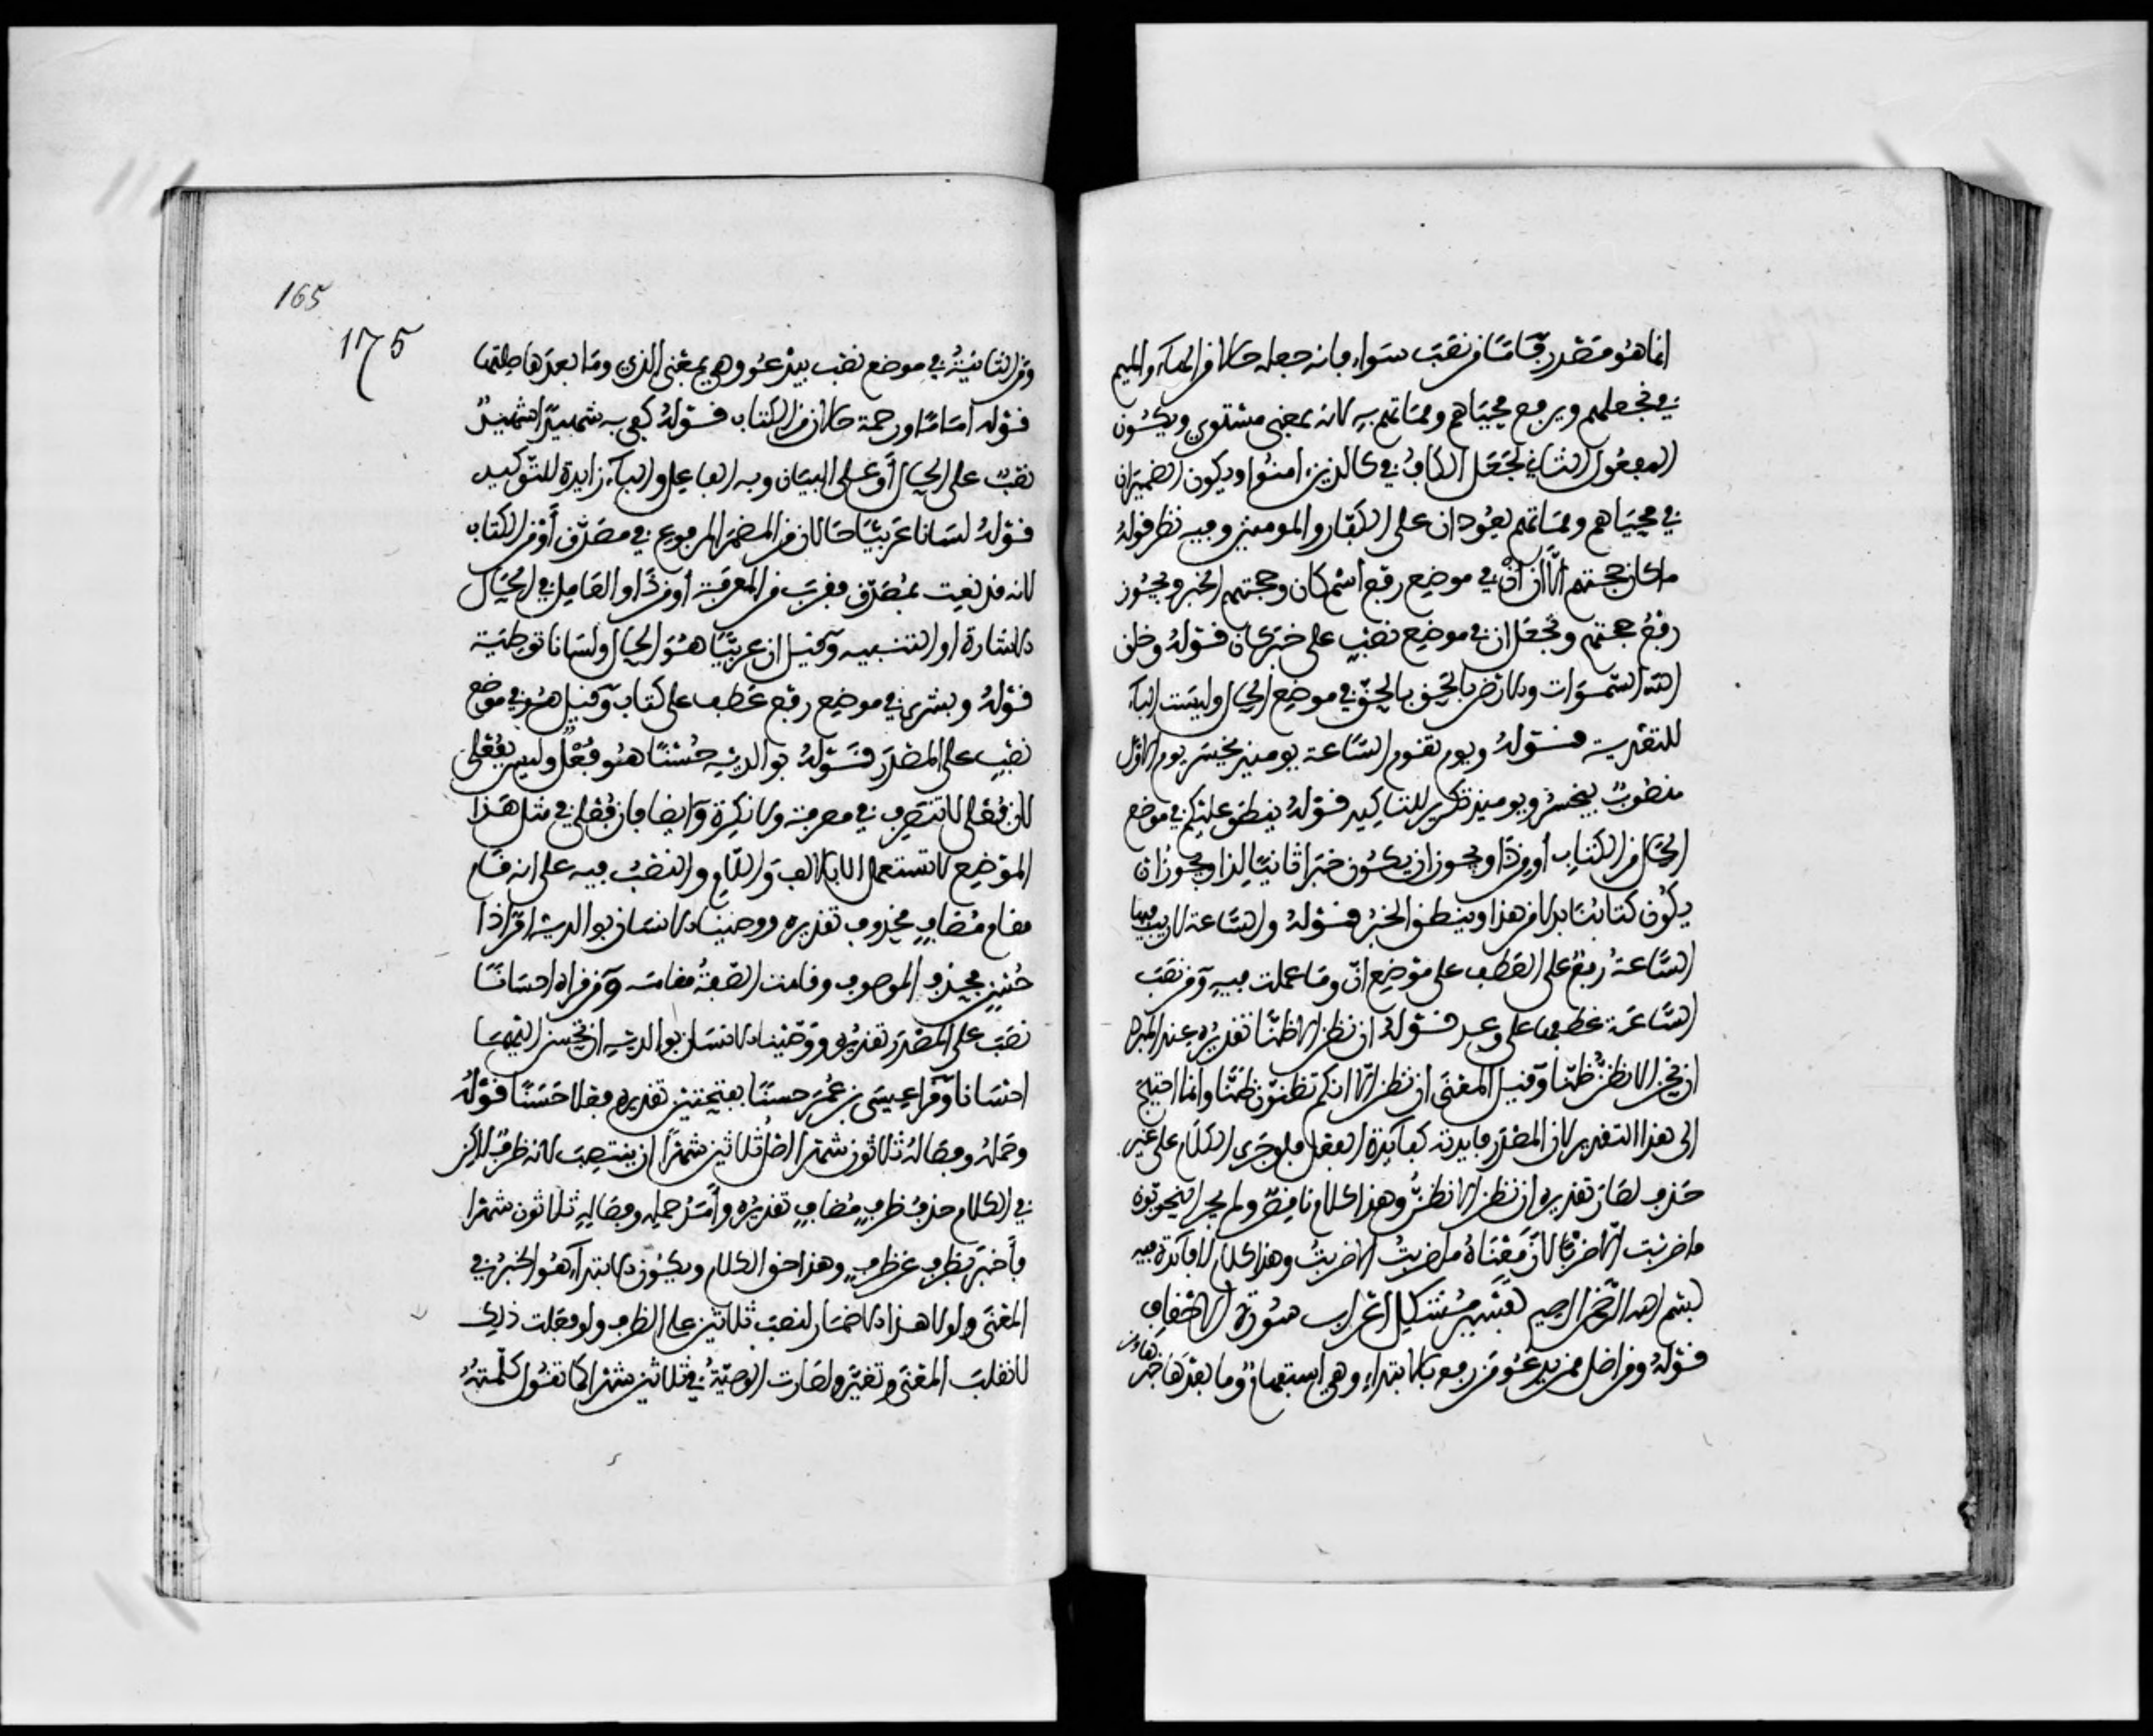 انما هو مصدر فامّا من نصب سواء فانه جعله حالا من الهاء والميم
في نجعلهم ويرفع محياهم ومماتهم به لانه بمعنى مستوى ويكون
المفعول الثاني لجعل الكاف في كالذين امنوا ويكون الضميران
في محياهم ومماتهم يعودان على الكفار والمومنين وفيه نظر قوله
ما كان حجتهم الّا ان أنْ في موضع رفع اسم كان وحجتهم الخبر ويجوز
رفع حجتهم وتجعل ان في موضع نصب على خبر كان قوله وخلق
الله السموات والارض بالحق بالحق في موضع الحال وليست الباء
للتعدية قوله ويوم تقوم الساعة يومئذ يخسر يوم الاول
منصوب بيخسر ويومئذ تكرير للتاكيد قوله ينطق عليكم في موضع
الحال من الكتاب أو من ذا ويجوز ان يكون خبرا ثانيا لذا ويجوز ان
يكون كتابنا بدلا من هذا وينطق الخبر قوله والساعة لا ريب فيها
الساعةُ رفع على العطف على موضع انّ وما عملت فيه ومن نصب
الساعة عطفها على وعد قوله ان نظن الا ظنّا تقديره عند المبرد
ان نحن الا نظنُّ ظنّا وقيل المعنى ان نظن الّا انكم تظنون ظنّا وانما احتيج
الى هذا التقدير لان المصدر فايدته كفايدة الفعل فلو جرى الكلام على غير
حذف لصار تقديره ان نظن الا نظنُّ وهذا كلام ناقصٌ ولم يجز النحويون
ما ضربت الّا ضربا لأنّ معناهُ ما ضربتُ الا ضربتُ وهذا كلام لا فائدة فيه
بسم الله الرحمن الرحيم تفسير مشكل اعراب سورة الاحقاف
قوله ومن اضل ممن يدعُو مَن رفع بالابتداء وهي استفهام وما بعدها خبرها ومن
165
175
ومَن الثانيةُ في موضع نصب بيدعُو وهي بمعنى الذي وما بعدها صلتها
قوله امَامًا ورحمة حالان من الكتاب قوله كفى به شهيدًا شهيدٌ
نصبٌ على الحال أو على البيان وبه الفاعل والباء زايدة للتوكيد
قوله لسانا عربيّا حالان من المضمر المرفوع في مصدّق أو من الكتاب
لانه قد نعت بمُصدّق فقرب من المعرفة أو من ذا والعامل في الحال
الاشارة او التنبيه وقيل ان عربيّا هُوَ الحال ولسانا توطية
قوله وبشرى في موضع رفع عطف على كتاب وقيل هو في موضع
نصب على المصدر قوله بوالديه حُسْنًا هو فُعْلٌ وليس بفُعْلى
لان فُعْلى لا تنصرف في معرفة ولا نكرة وايضا فان فُعْلى في مثل هذا
الموضع لا تستعمل الا بالالف واللام والنصب فيه على انه قام
مقام مُضافٍ محذوف تقديره ووصينا الانسان بوالديه امرًا ذا
حُسْنٍ فحذف الموصوف وقامت الصفةُ مقامه ومن قراه احسانًا
نصب على المصدر تقديره ووصّينا الانسان بوالديه ان يحسن اليهما
احسانا وقرا عيسى بن عُمر حسنًا بفتحتين تقديره فعلا حَسَنًا قوله
وحمله وفصاله ثلاثون شهرا اصلُ ثلاثين شهرًا ان ينتصب لانه ظرفٌ لاكن
في الكلام حذف ظرفٍ مُضاف تقديره وأمد حمله وفصاله ثلاثون شهرا
فأخبر بظرف عن ظرف وهذا حق الكلام ويكون الابتداء هو الخبر في
المعنى ولولا هذا الاضمار لنصب ثلاثين على الظرف ولو فعلت ذلك
لانقلب المعنى وتغيّر ولصارت الوصيّةُ في ثلاثين شهرا كما تقول كلّمتهُ